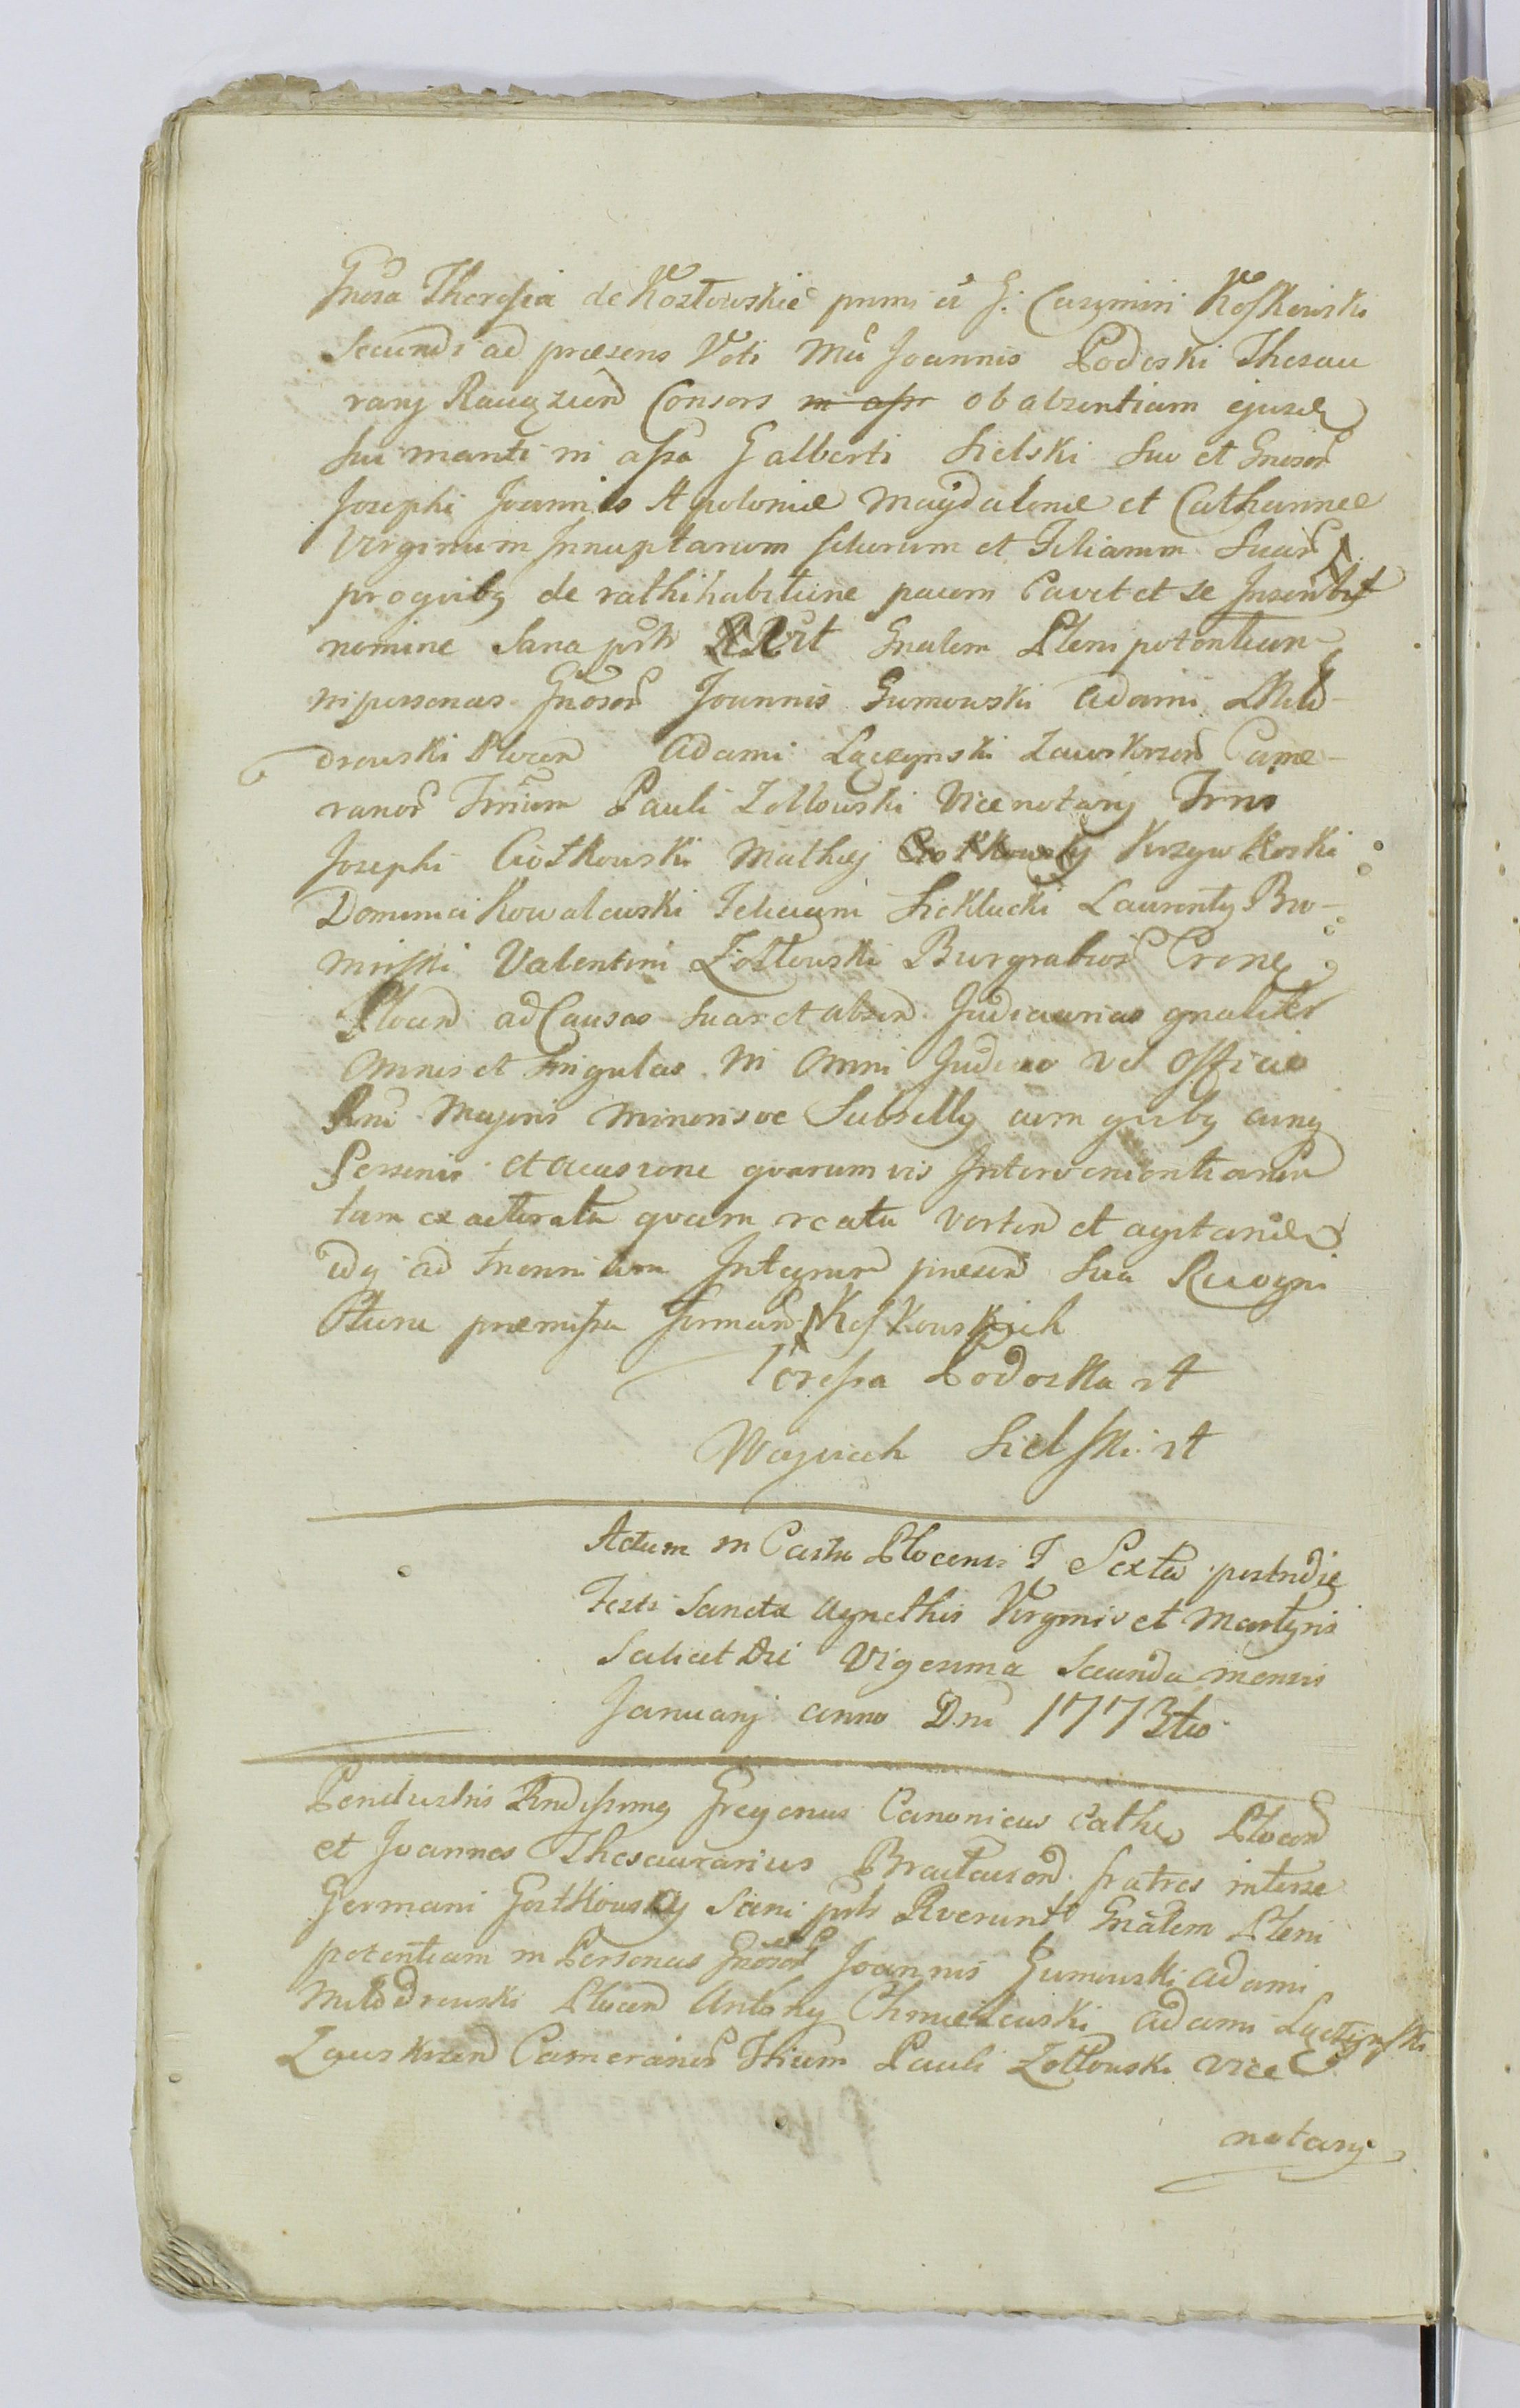 Gnosa Theresia de Kozłowskie primi G: Casimiri Koskowski
Secundi ad præsens Voti Mci Joannis Podoski Thesau
rarij Raciązien Consors in assa ob absentiam ejusd
sui mariti in assa G alberti Sielski suo et Gnosor
Josephi Joannis Apoloniæ Magdalenæ et Catharinæ
Virginum Innuptarum filiorum et Filiarum Suar
pro quibq de rathihabitione pacem Cavet et se Inscribit
nomine Sana prbs RRvit Gnalem Plenipotentian
in personas Gnosor Joannis Gumowski Adami Mło
drowski Plocen Adami Łączynski Zawskrzen Came
rarior Trrium Pauli Zołtowski Vicenotarij Trris
Josephi Ciołkowski Mathej Krzywkoski
Dominici Kowalewski Feliciani Sieklucki Laurentij Bro
mirski Valentini Żółtowski Burgrabior Crense
Plocen ad Causas suas et absen Judiciarias gnaliter
Omnes et Singulas in Omni Judicio vel Officio
Rni Majoris minorisve Subsellij cum quibq cunq
Personis et occasione quarumvis Intervenientiarum
tam ex actoratu quam reatu verten et agitand
idq ad Integrum præsen Sua Recogni
tione præmissa firman Koskowskich
Teressa Podoska rt
Woyciech Sielski rt
Actum in Castro Plocensi F Sexta postridie
Festi Sanctæ Agnethis Virginis et Martyris
Scilicet Die Vigesima Secunda mensis
Januarij anno Dni 1773tio
Perillustris Rndissimq Gregorius Canonicus Cathed Plocen
et Joannes Thesaurarius Braclavien fratres interse
Germani Gostkowscy Sani prbs RRverunt Gnalem Pleni
potentiam in Personas Gnosor Joannis Gumowski Adami
Młodrowski Plocen Antonij Chmielewski Adami Łączynski
Zawskrzen Camerarior Trrium Pauli Zołtowski Vice
notarij